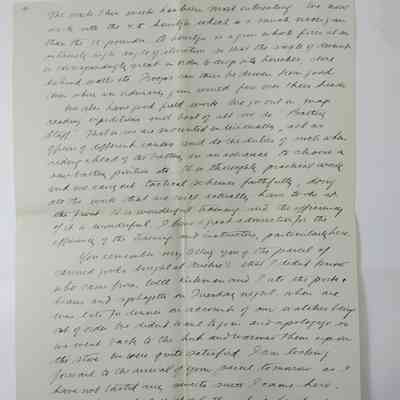 The work I have much has been most interesting. We now
work with the 4.5 howitzer which is a much nicer gun
than the 18 pounder. A howitzer is a gun which fires at an
extremely high angle of elevation so that the angle of descent
is correspondingly great in order to drop into trenches,
behind walls etc. can thus be driven from good
cover where an ordinary gun would fire over their heads.
We also have good field work. We go out on map
reading expeditions and best of all we do Battery
Staff. That is we are mounted on act as
officers of different ranks and do the duties of such when
riding ahead of the battery in an advance to choose a
new battery position etc. It is thoroughly practical work
and we carry out tactical schemes faithfully, doing
all the work that we will actually have to do at
the front. It is wonderful training and the efficiency
of it is wonderful. I have a great admiration for the
efficiency of the training and instructors, particularly here.
You remember my telling you of the parcel of
canned goods bought at that I didn't know
who came from. Well and I ate the pork &
beans and on Tuesday night when we
were late for dinner on account of our watches being
out of order. We didn't want to go in and apologize so
we went back to the hut and warmed them up on
the stove. We were quite satisfied. I am looking
forward to the arrival of your parcel tomorrow as I
have not tasted any since I came here.